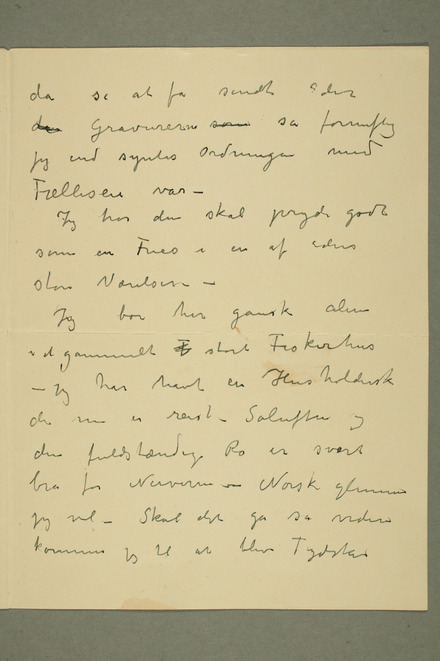 da se at få sendt eder
den Gravurerne som så fornuftig
jeg end syntes Ordningen med
Fællesen var –
Jeg tror den skal pryde godt
som en Fries i en af eders
store Værelser –
Jeg bor her ganske alene
i et gammelt F stort Fiskerhus
– Jeg har havt en Husholderske
de nu er reist – Soluften og
den fuldstændige Ro er svært
bra for Nerverne – Norsk glemmer
jeg vel – Skal det gå så videre
kommer jeg til at blive Tydsker